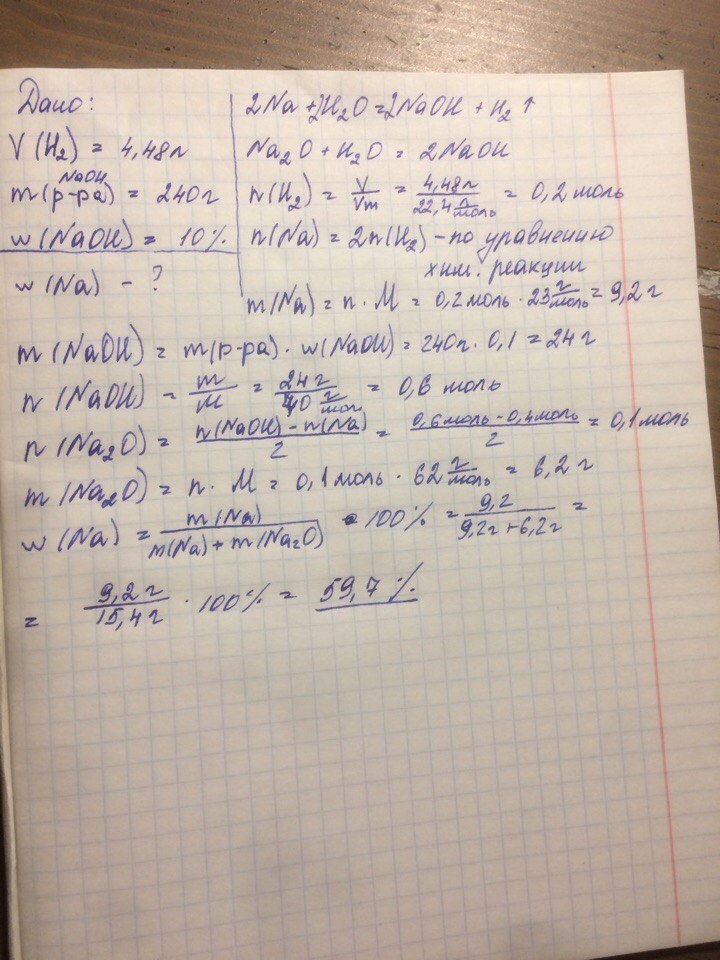 Дано:
V(H₂) = 4,48л
m(р-ра) NaOH = 240г
w(NaOH) = 10%
w(Na) - ?
2Na + 2H₂O = 2NaOH + H₂↑
Na₂O + H₂O = 2NaOH
n(H₂) = V/Vm = 4,48л / 22,4 л/моль = 0,2 моль
n(Na) = 2n(H₂) - по уравнению
хим. реакции
m(Na) = n · M = 0,2 моль · 23 г/моль = 9,2 г
m(NaOH) = m(р-ра) · w(NaOH) = 240г · 0,1 = 24г
n(NaOH) = m/M = 24г / 40 г/моль = 0,6 моль
n(Na₂O) = (n(NaOH) - n(Na)) / 2 = (0,6моль - 0,4моль) / 2 = 0,1моль
m(Na₂O) = n · M = 0,1моль · 62 г/моль = 6,2 г
w(Na) = m(Na) / (m(Na) + m(Na₂O)) · 100% = 9,2 / (9,2г + 6,2г) =
= 9,2г / 15,4г · 100% = 59,7%